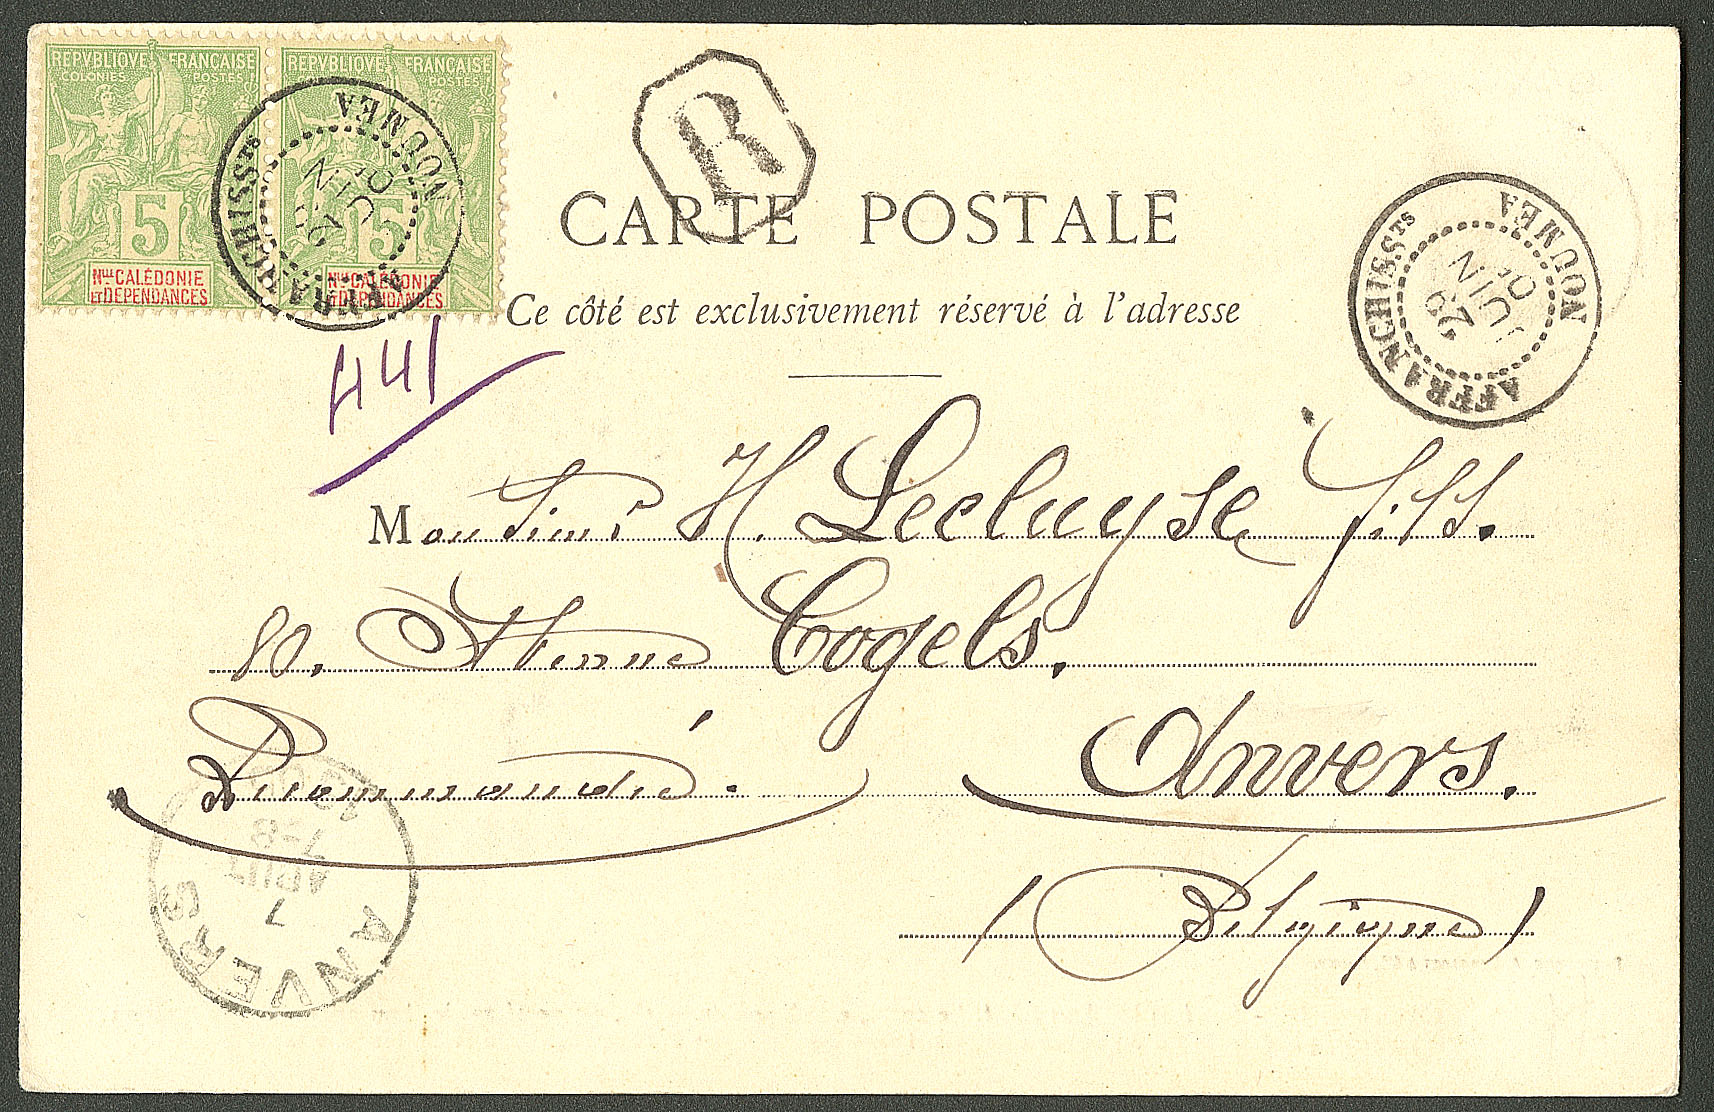 REPVBLIQVE FRANÇAISE
COLONIES POSTES
5
Nlle CALÉDONIE
ET DEPENDANCES
REPVBLIQVE FRANÇAISE
POSTES
5
Nlle CALÉDONIE
ET DEPENDANCES
NOUMEA
AFFRANCHISSts
29
JUIN
R
CARTE POSTALE
Ce côté est exclusivement réservé à l'adresse
NOUMEA
AFFRANCHISSts
29
JUIN
441
Monsieur H. Lecluyse fils.
80. Avenue Cogels.
Recommandé. Anvers.
(Belgique)
ANVERS
7
AOUT
7-8